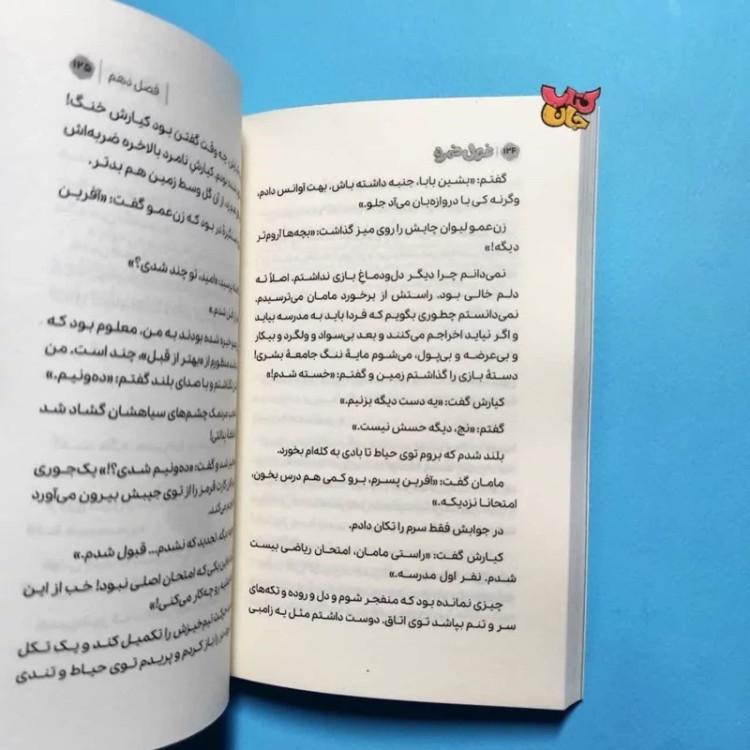 کتاب
جان
۱۲۴
گفتم: «بشین بابا، جنبه داشته باش، بهت آوانس دادم.
وگرنه کی با دروازه‌بان می‌آد جلو.»
زن‌عمو لیوان چایش را روی میز گذاشت: «بچه‌ها آروم‌تر
دیگه!»
نمی‌دانم چرا دیگر دل‌ودماغ بازی نداشتم. اصلاً ته
دلم خالی بود. راستش از برخورد مامان می‌ترسیدم.
نمی‌دانستم چطوری بگویم که فردا باید به مدرسه بیاید
و اگر نیاید اخراجم می‌کنند و بعد بی‌سواد و ولگرد و بیکار
و بی‌عرضه و بی‌پول، می‌شوم مایهٔ ننگ جامعهٔ بشری!
دستهٔ بازی را گذاشتم زمین و گفتم: «خسته شدم!»
کیارش گفت: «یه دست دیگه بزنیم.»
گفتم: «نچ، دیگه حسش نیست.»
بلند شدم که بروم توی حیاط تا بادی به کله‌ام بخورد.
مامان گفت: «آفرین پسرم، برو کمی هم درس بخون،
امتحانا نزدیکه.»
در جوابش فقط سرم را تکان دادم.
کیارش گفت: «راستی مامان، امتحان ریاضی بیست
شدم. نفر اول مدرسه.»
چیزی نمانده بود که منفجر شوم و دل و روده و تکه‌های
سر و تنم بپاشد توی اتاق. دوست داشتم مثل یه زامبی
فصل دهم
۱۲۵
چه وقت گفتن بود کیارش خنگ!
کیارش نامرد بالاخره ضربه‌اش
از آن گل وسط زمین هم بدتر.
بود که زن‌عمو گفت: «آفرین
«امید، تو چند شدی؟»
شدم.»
خیره شده بودند به من، معلوم بود که
منظورم از «بهتر از قبل»، چند است. من
و با صدای بلند گفتم: «ده‌ونیم.»
چشم‌های سیاهشان گشاد شد
و گفت: «ده‌ونیم شدی؟!» یک‌جوری
کارت قرمز را از توی جیبش بیرون می‌آورد
تجدید که نشدم... قبول شدم.»
که امتحان اصلی نبود! خب از این
رو چه‌کار می‌کنی!»
خیزش را تکمیل کند و یک تکل
را باز کردم و پریدم توی حیاط و تندی